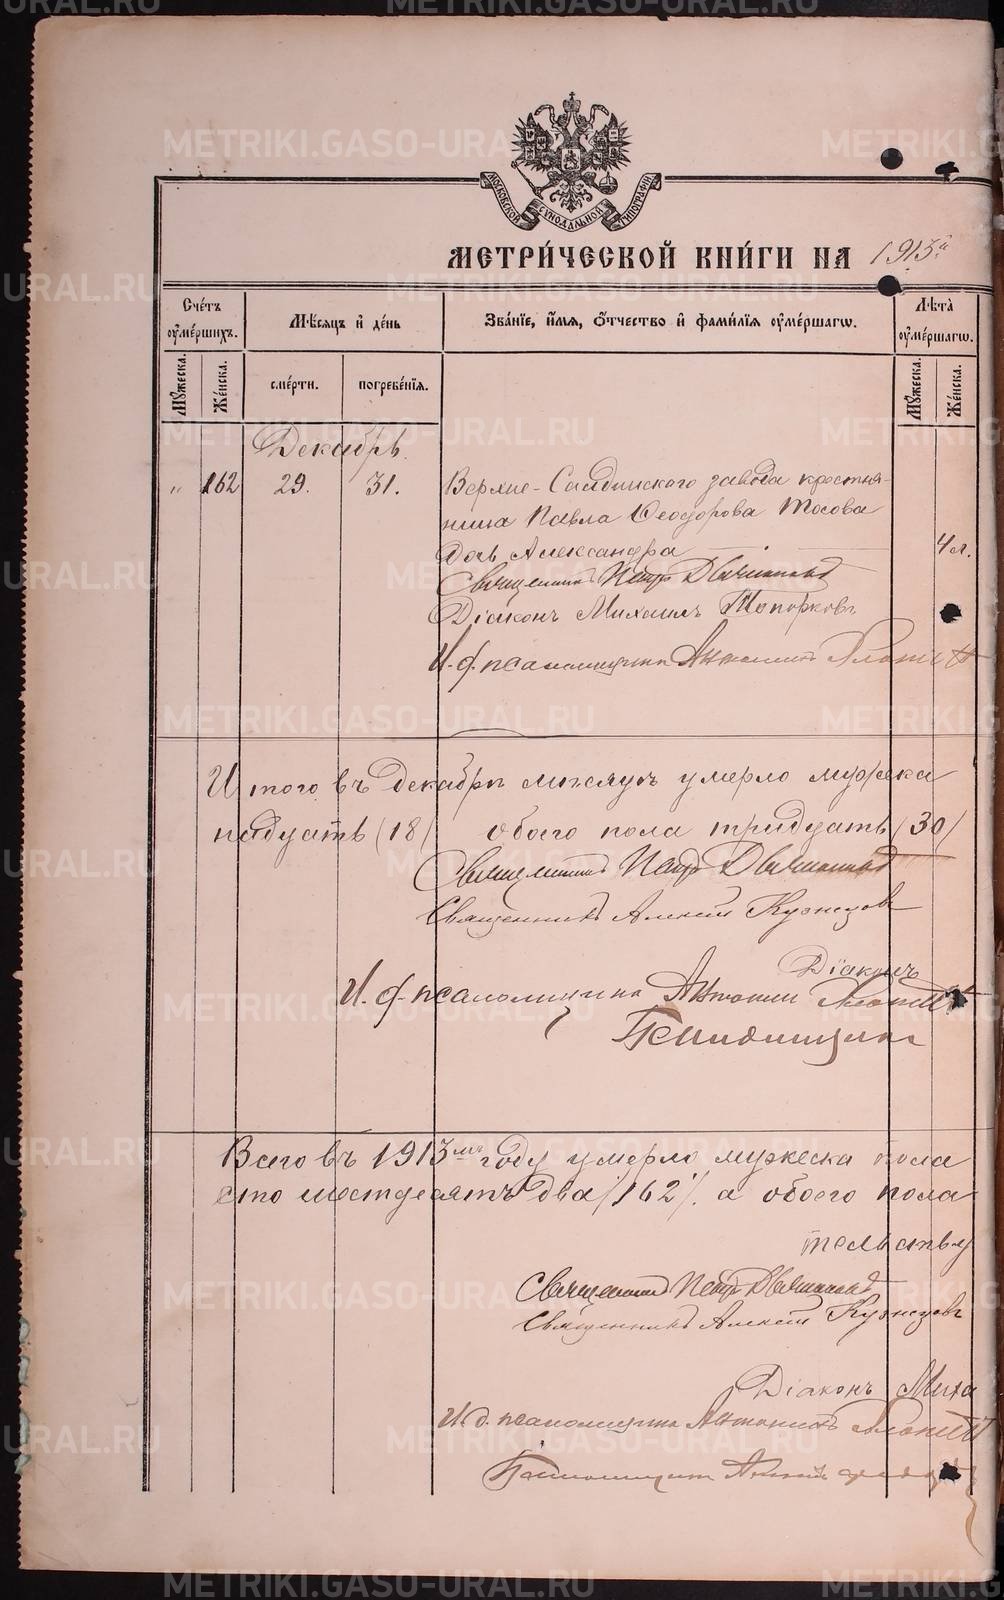 МОСКОВСКОЙ СѴНОДАЛЬНОЙ ТИПОГРАФІИ
МЕТРИ́ЧЕСКОЙ КНИ́ГИ НА 1913й
Сче́тъ ᲂумершихъ.
Мѣ́сяцъ и҆ де́нь
Зва́нїе, и҆́мѧ, ѻ҆́тчество и҆ фамилїѧ ᲂу҆ме́ршагѡ.
Лѣта̀ ᲂу҆ме́ршагѡ.
Мꙋ́жеска.
Же́нска.
сме́рти.
погребе́нїѧ.
Мꙋ́жеска.
Же́нска.
Декабрь.
" 162 29. 31. Верхне-Салдинского завода крестья-
нина Павла Ѳеодорова Тосова
дочь Александра 4 л.
Священникъ Петръ
Діаконъ Михаилъ Топорковъ
И. ф. псаломщика Антонинъ
Итого въ декабрѣ мѣсяцѣ умерло мужеска
надцать (18) обоего пола тридцать (30)
Священникъ Петръ
Священникъ Алексій Кузнецовъ
Діаконъ
И. ф. псаломщика Антонинъ
Всего въ 1913мъ году умерло мужеска пола
сто шестьдесятъ два (162). а обоего пола
тельству
Священникъ Петръ
Священникъ Алексій Кузнецовъ
Діаконъ Миха
И. д. псаломщика Антонинъ
METRIKI.GASO-URAL.RU